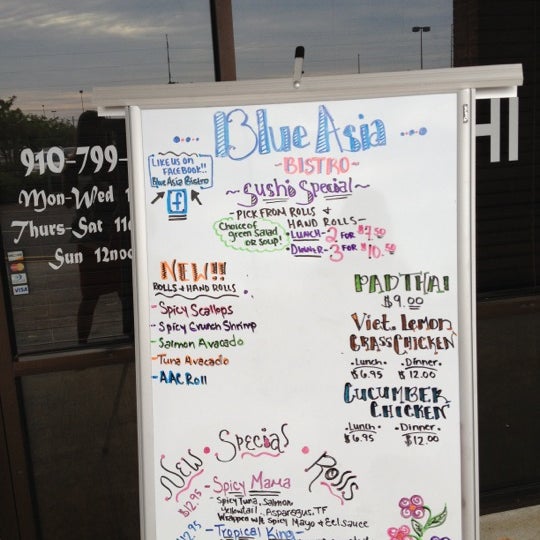 Blue Asia
-BISTRO-
LIKE US ON
FACEBOOK!!
Blue Asia Bistro
f
~Sushi Special~
-PICK FROM ROLLS &
HAND ROLLS-
Choice of
green Salad
or Soup!
•LUNCH-2 FOR $7.50
•DINNER-3 FOR $10.50
NEW!!
ROLLS & HAND ROLLS
-Spicy Scallops
-Spicy Crunch Shrimp
-Salmon Avocado
-Tuna Avacado
-AAC Roll
PAD THAI
$9.00
Viet. Lemon
GRASS CHICKEN
•Lunch• •Dinner•
$6.95 $12.00
CUCUMBER
CHICKEN
•Lunch• •Dinner•
$6.95 $12.00
NEW • Special • Rolls
$12.95 -Spicy Mama
-Spicy Tuna, Salmon
Yellowtail, Asparagus, TF
Wrapped w/ Spicy Mayo & Eel Sauce
-Tropical King-
910-799-
Mon-Wed 1
Thurs-Sat 11
Sun 12noo
VISA
HI